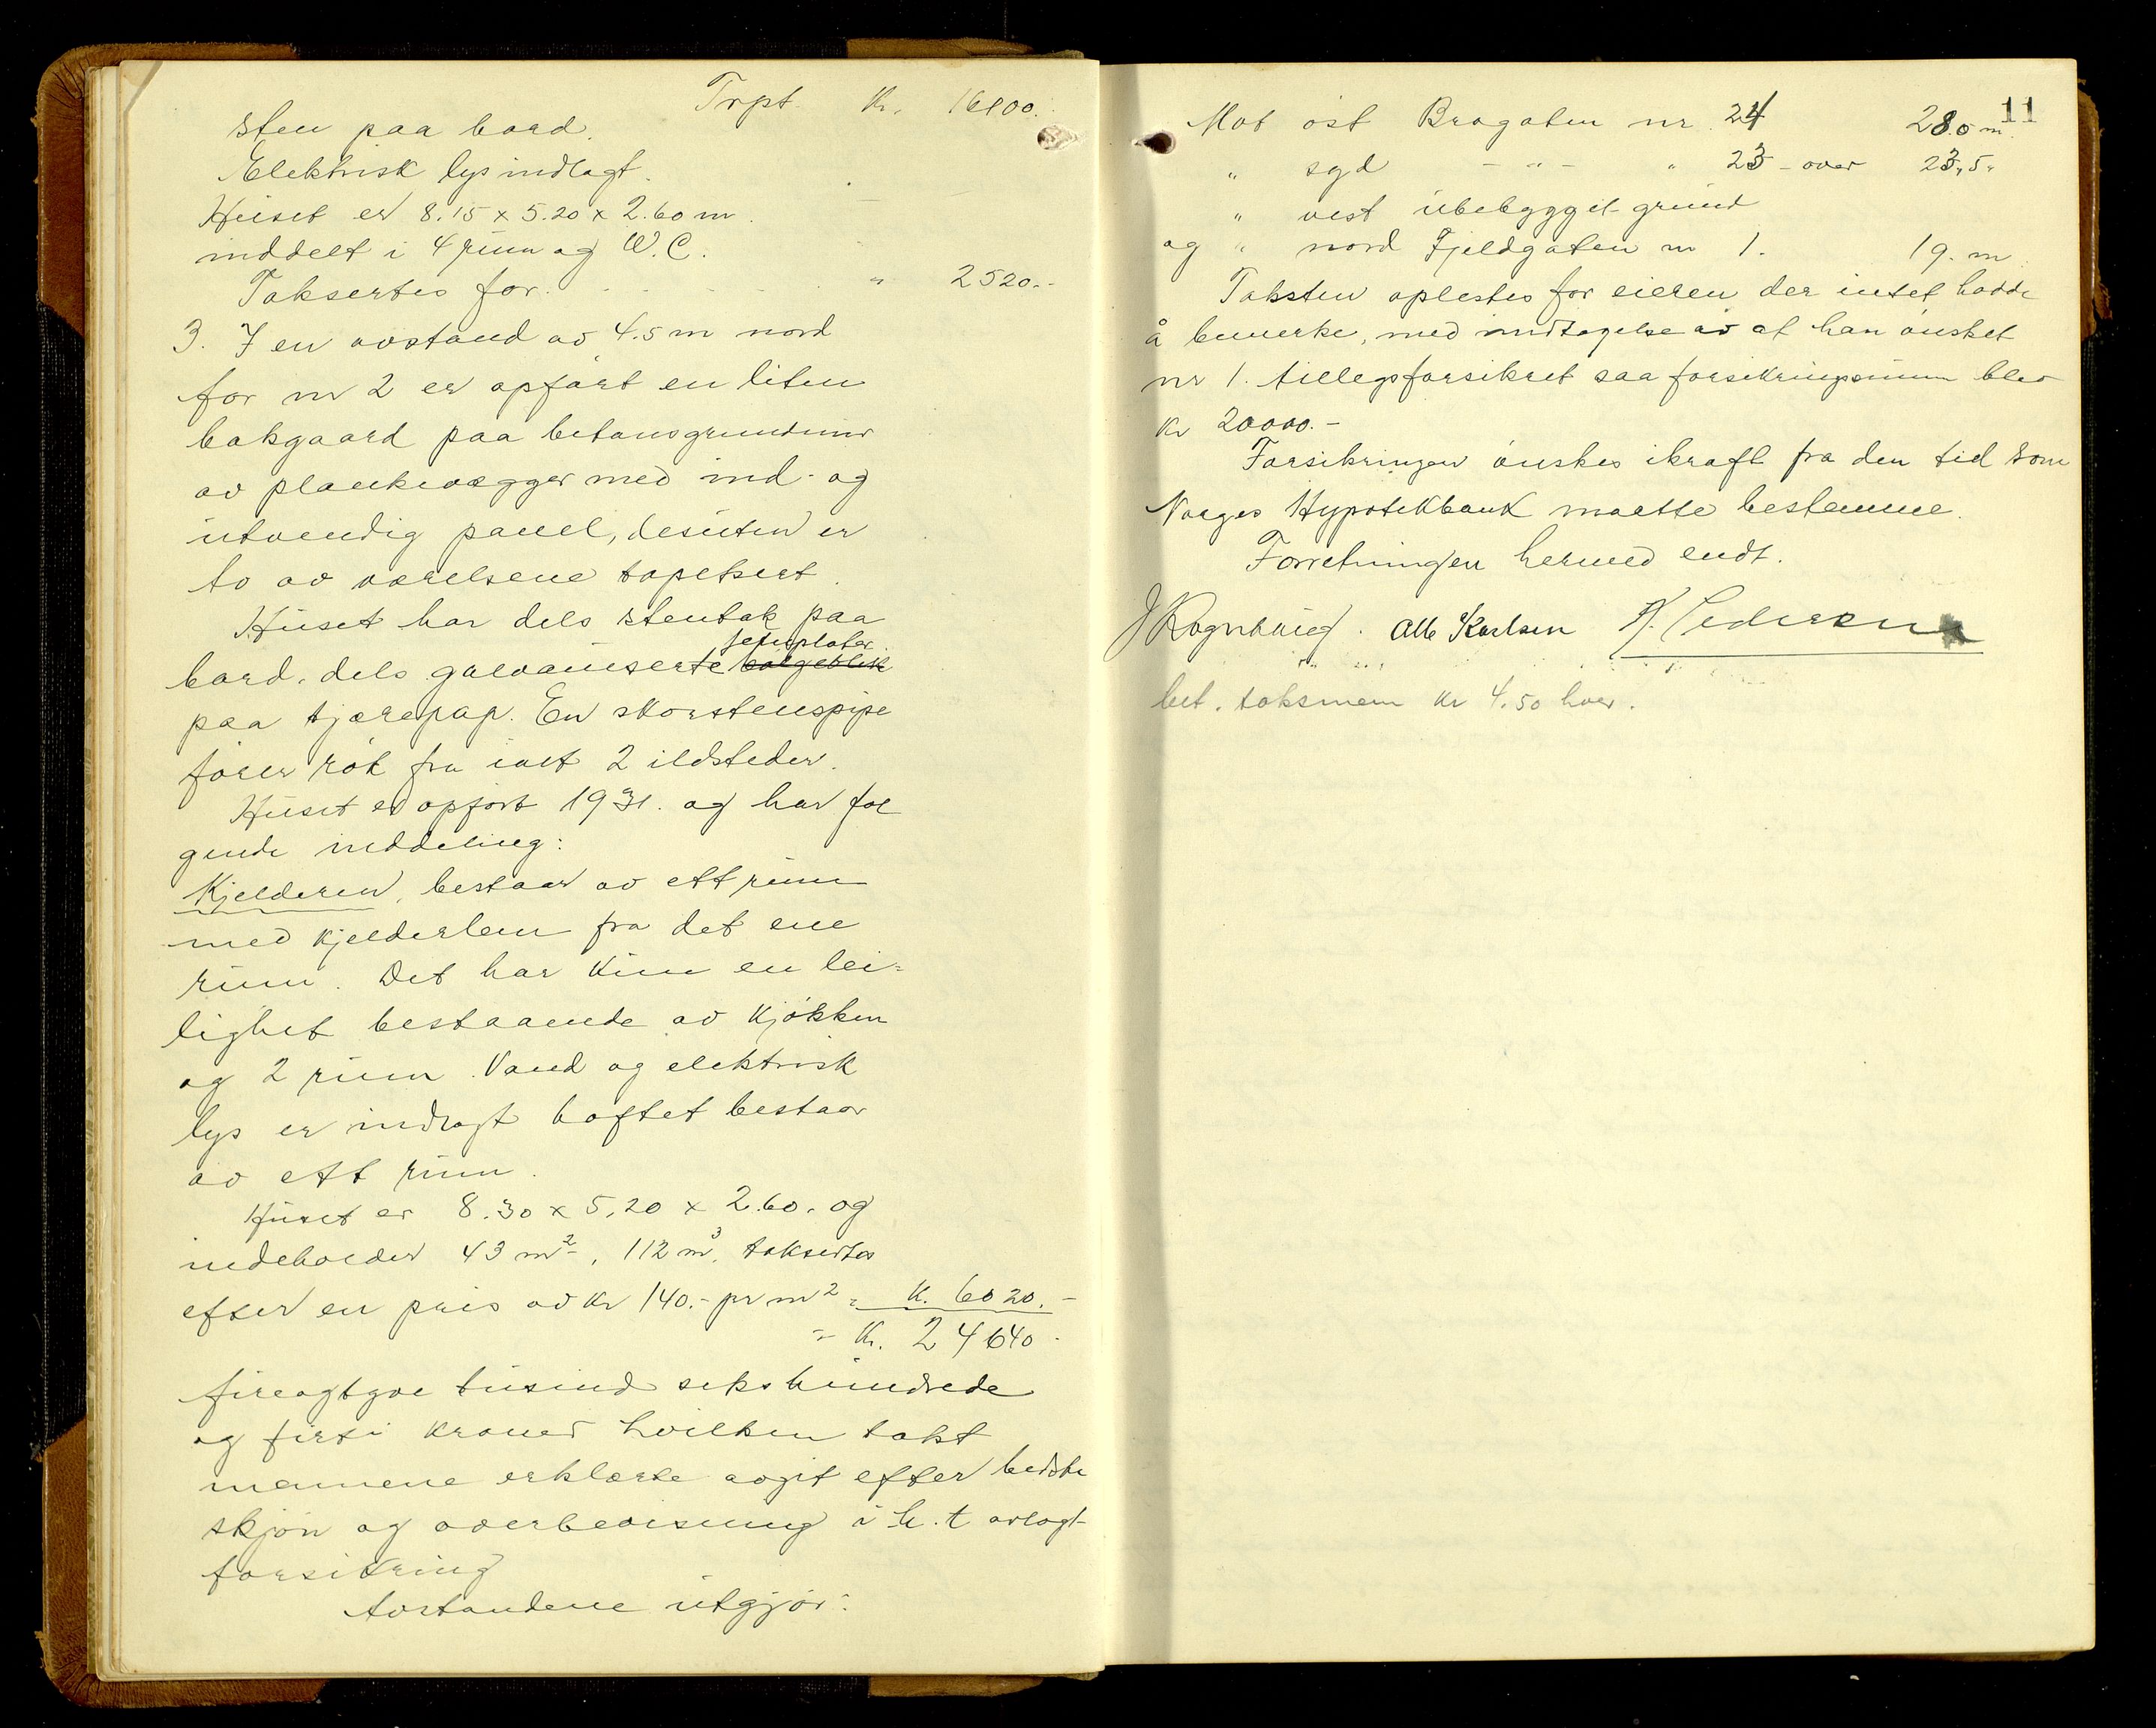 Trpt. Kr. 16100.
sten paa bord.
Elektrisk lys indlagt.
Huset er 8.15 x 5.20 x 2.60 m.
inddelt i 4 rum og W.C.
Taksertes for " 2520.-
3. I en avstand av 4.5 m nord
for nr 2 er opført en liten
bakgaard paa betongrundmur
av plankevægger med ind- og
utvendig panel, desuten er
to av værelsene tapetsert.
Huset har dels stentak paa
bord, dels galvaniserte
paa tjærepap. En skorstenspipe
fører røk fra ialt 2 ildsteder.
Huset er opført 1931. og har føl
gende inddeling:
Kjelderen, bestaar av ett rum
med kjelderlem fra det ene
rum. Det har kun en lei-
lighet bestaaende av kjøkken
og 2 rum. Vand og elektrisk
lys er indlagt loftet bestaar
av ett rum.
Huset er 8.30 x 5.20 x 2.60. og
indeholder 43 m², 112 m³, taksertes
efter en pris av kr 140.- pr m² = K. 6020.-
= Kr. 24640.-
fireogtyve tusind sekshundrede
og firti kroner hvilken takst
mennene erklærte avgit efter bedste
skjøn og overbevisning i h.t avlagt
forsikring
Avstandene utgjør:
11
Mot øst Bragaten nr. 24 28.0 m
" syd - " - " 23 - over 23,5 "
" vest ubebygget grund
og " nord Fjeldgaten nr 1. 19. m
Taksten oplestes for eieren der intet hadde
å bemerke, med undtagelse av at han ønsket
nr 1. tillegsforsikret saa forsikringssum blev
kr 20000.-
Forsikringen ønskes ikraft fra den tid som
Norges Hypotekbank maatte bestemme.
Forretningen hermed endt.
J Rognhaug. Alb Karlsen K. Pedersen
bet. taksmenn kr 4.50 hver.